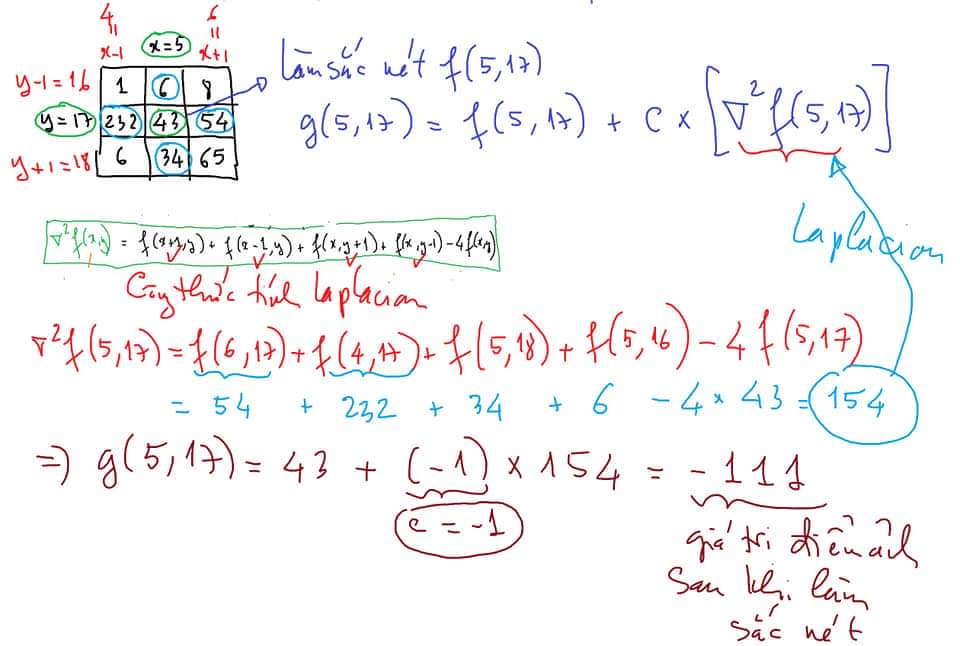 4 6
x-1 x=5 x+1
y-1=16 1 6 8
y=17 232 43 54
y+1=18 6 34 65
làm sắc nét f(5,17)
g(5,17) = f(5,17) + c × [∇²f(5,17)]
Laplacian
∇²f(x,y) = f(x+1,y) + f(x-1,y) + f(x,y+1) + f(x,y-1) - 4f(x,y)
Công thức tính Laplacian
∇²f(5,17) = f(6,17) + f(4,17) + f(5,18) + f(5,16) - 4f(5,17)
= 54 + 232 + 34 + 6 - 4 × 43 = 154
=> g(5,17) = 43 + (-1) × 154 = -111
c = -1
giá trị điểm ảnh
sau khi làm
sắc nét